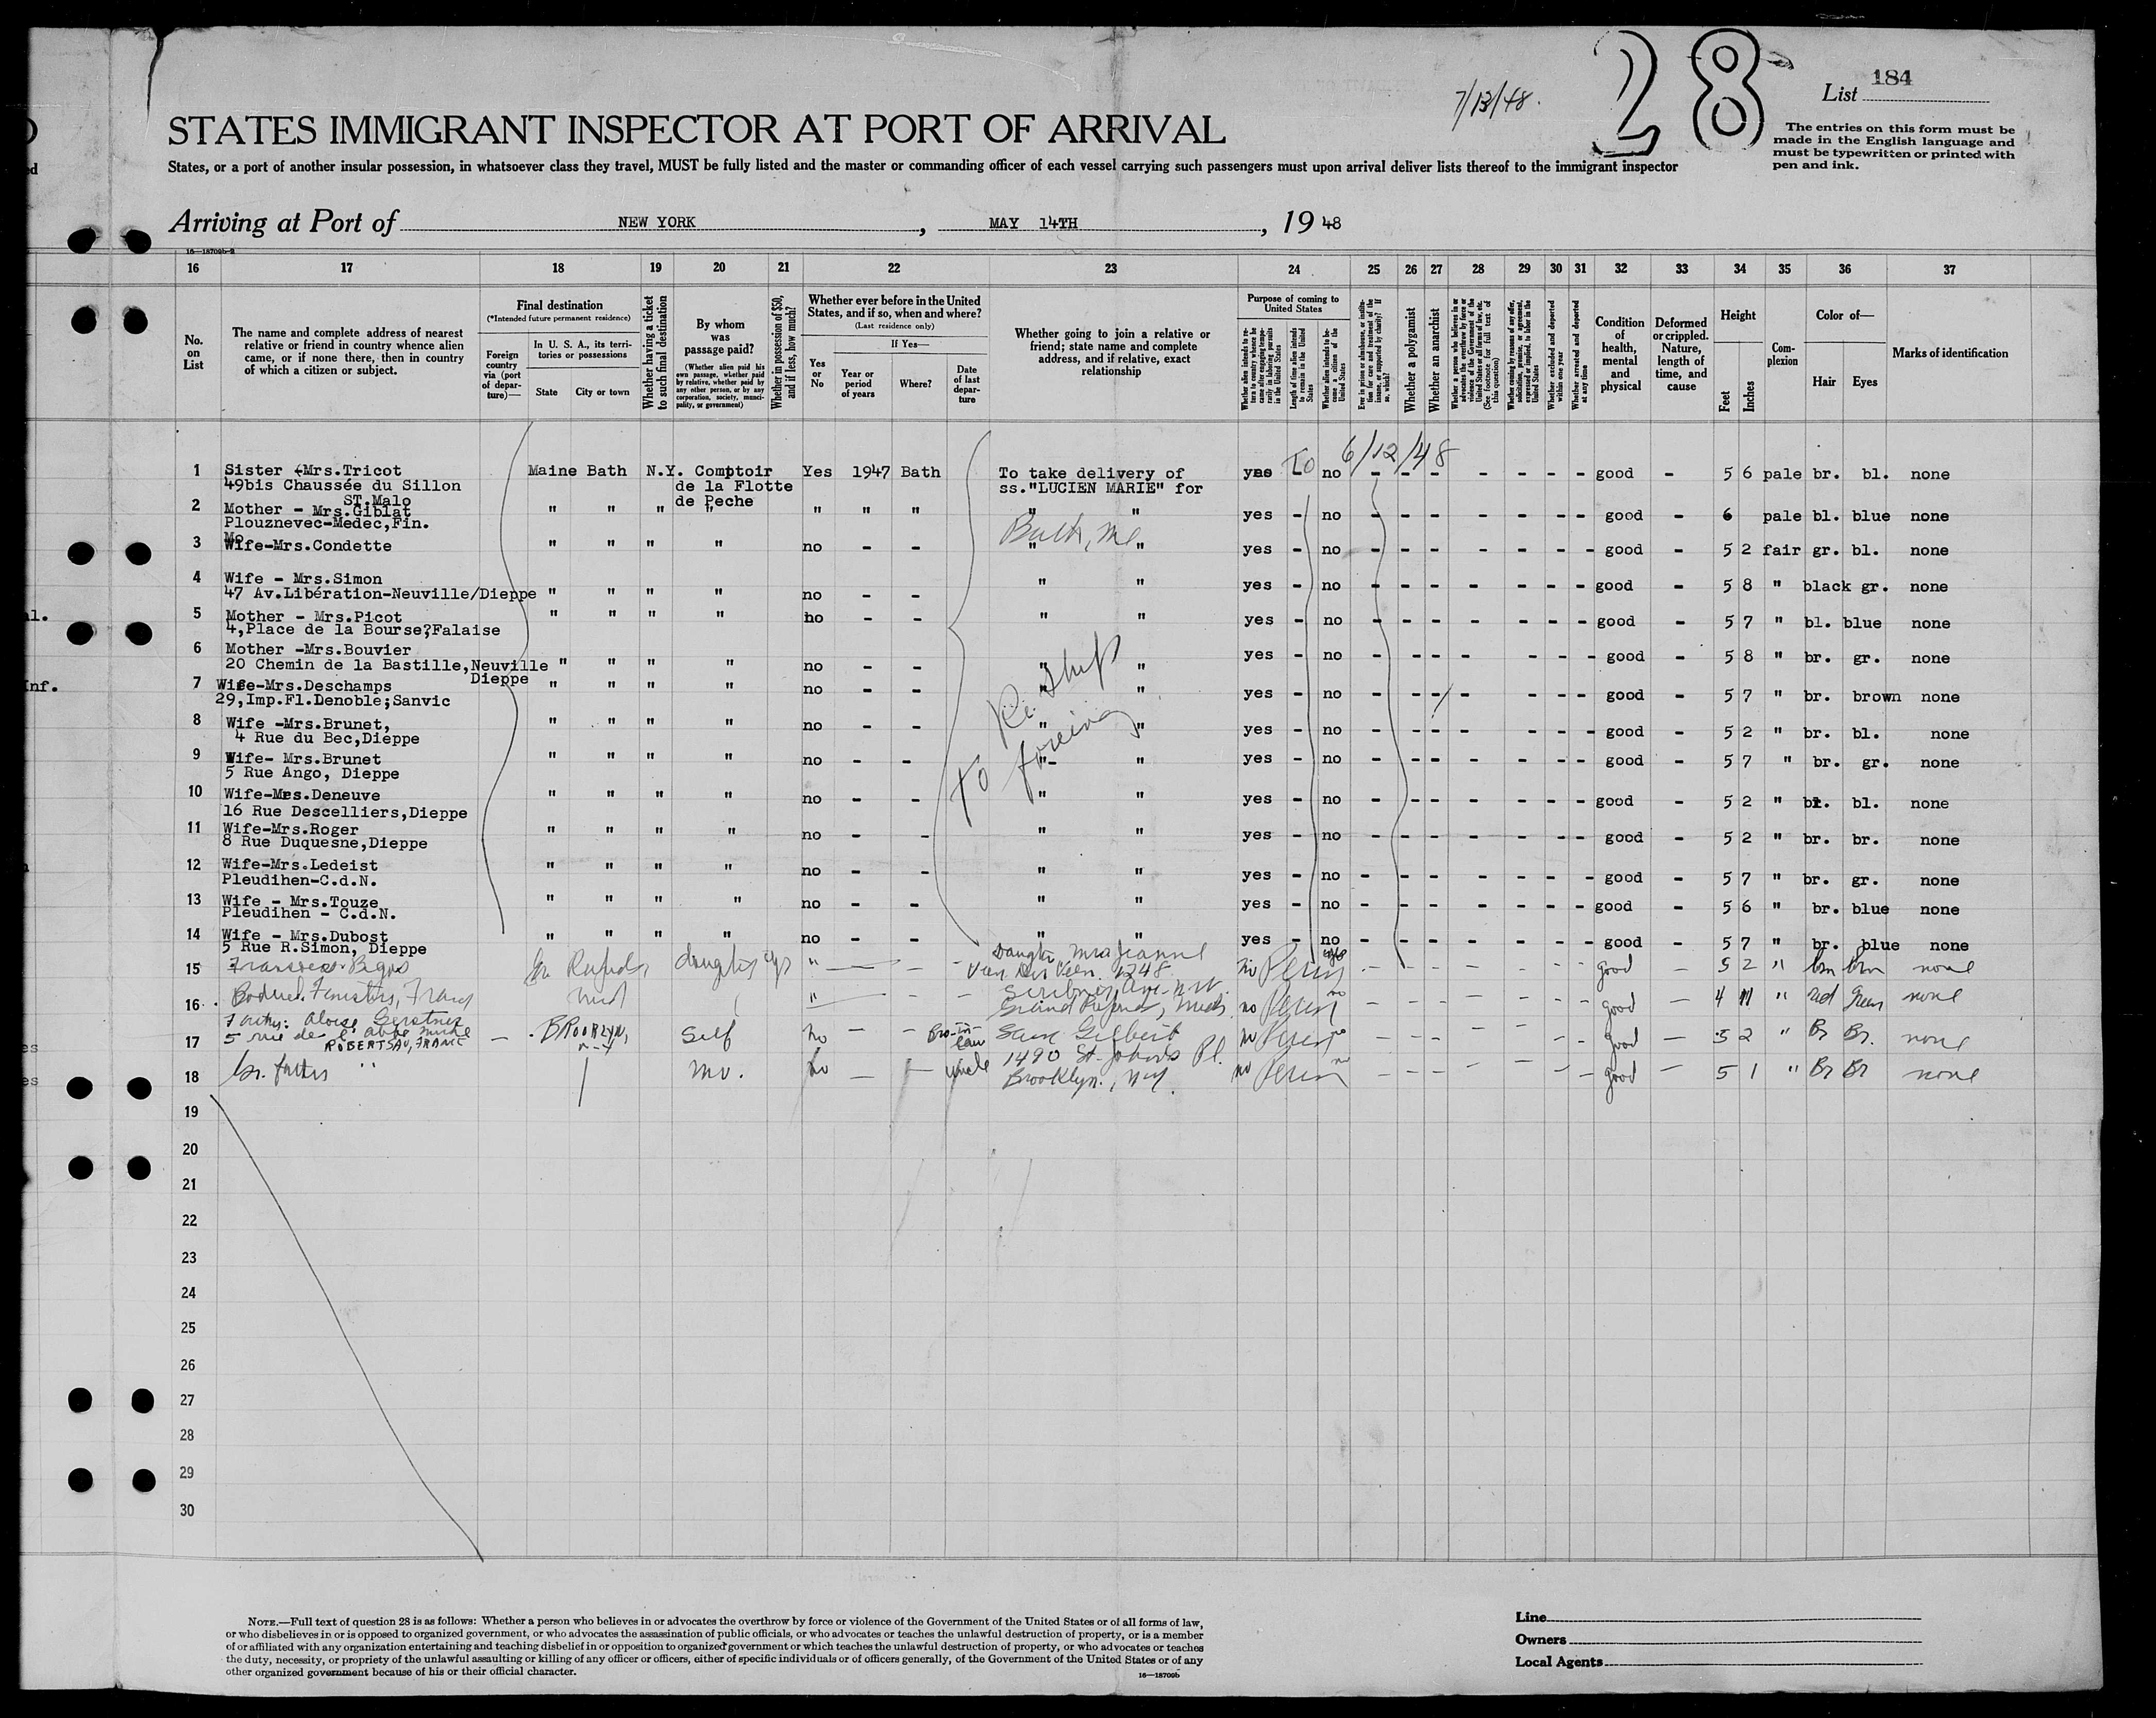 28
7/13/48.
List 184
STATES IMMIGRANT INSPECTOR AT PORT OF ARRIVAL
The entries on this form must be made in the English language and must be typewritten or printed with pen and ink.
States, or a port of another insular possession, in whatsoever class they travel, MUST be fully listed and the master or commanding officer of each vessel carrying such passengers must upon arrival deliver lists thereof to the immigrant inspector
Arriving at Port of NEW YORK, MAY 14TH, 1948
16—18709b-2
16 17 18 19 20 21 22 23 24 25 26 27 28 29 30 31 32 33 34 35 36 37
No. on List
The name and complete address of nearest relative or friend in country whence alien came, or if none there, then in country of which a citizen or subject.
Final destination
(*Intended future permanent residence)
Foreign country via (port of departure)—
In U. S. A., its territories or possessions
State City or town
Whether having a ticket to such final destination
By whom was passage paid?
(Whether alien paid his own passage, whether paid by relative, whether paid by any other person, or by any corporation, society, municipality, or government)
Whether in possession of $50, and if less, how much?
Whether ever before in the United States, and if so, when and where?
(Last residence only)
Yes or No
If Yes—
Year or period of years
Where?
Date of last departure
Whether going to join a relative or friend; state name and complete address, and if relative, exact relationship
Purpose of coming to United States
Length of time alien intends to remain in the United States
Whether alien intends to become a citizen of the United States
Whether a polygamist
Whether an anarchist
Whether excluded and deported within one year
Whether arrested and deported at any time
Condition of health, mental and physical
Deformed or crippled. Nature, length of time, and cause
Height
Feet Inches
Complexion
Color of—
Hair Eyes
Marks of identification
6/12/48
1 Sister -Mrs.Tricot Maine Bath N.Y. Comptoir Yes 1947 Bath To take delivery of no - - - - - - - good - 5 6 pale br. bl. none
49bis Chaussée du Sillon de la Flotte ss."LUCIEN MARIE" for
ST.Malo de Peche
2 Mother - Mrs.Giblat " " " " " " " " " yes - no - - - - - - - good - 6 pale bl. blue none
Plouznevec-Medec,Fin.
Bath, Me
3 Wife-Mrs.Condette " " " " no - - " " yes - no - - - - - - - good - 5 2 fair gr. bl. none
4 Wife - Mrs.Simon " " yes - no - - - - - - - good - 5 8 " black gr. none
47 Av.Libération-Neuville/Dieppe " " " " no - -
5 Mother - Mrs.Picot " " " " no - - " " yes - no - - - - - - - good - 5 7 " bl. blue none
4,Place de la Bourse?Falaise
6 Mother -Mrs.Bouvier yes - no - - - - - - - good - 5 8 " br. gr. none
20 Chemin de la Bastille,Neuville " " " " no - - " "
Dieppe
7 Wife-Mrs.Deschamps " " " " no - - " " yes - no - - - - - - - good - 5 7 " br. brown none
29,Imp.Fl.Denoble;Sanvic
Re. Ship
to foreing
8 Wife -Mrs.Brunet, " " " " no - - " " yes - no - - - - - - - good - 5 2 " br. bl. none
4 Rue du Bec,Dieppe
9 Wife- Mrs.Brunet " " " " no - - " " yes - no - - - - - - - good - 5 7 " br. gr. none
5 Rue Ango, Dieppe
10 Wife-Mrs.Deneuve " " " " no - - " " yes - no - - - - - - - good - 5 2 " bl. none
16 Rue Descelliers,Dieppe
11 Wife-Mrs.Roger " " " " no - - " " yes - no - - - - - - - good - 5 2 " br. br. none
8 Rue Duquesne,Dieppe
12 Wife-Mrs.Ledeist " " " " no - - " " yes - no - - - - - - - good - 5 7 " br. gr. none
Pleudihen-C.d.N.
13 Wife - Mrs.Touze " " " " no - - " " yes - no - - - - - - - good - 5 6 " br. blue none
Pleudihen - C.d.N.
14 Wife - Mrs.Dubost " " " " no - - " " yes - no - - - - - - - good - 5 7 " br. blue none
5 Rue R.Simon, Dieppe
15 Gr Rapids daughter " — — Daughter Mrs Jeanne no Perm good — 5 2 " brn brn none
1248
16 Mich " — — Scribner Ave. N.W. no Perm no good — 4 11 " red Green none
Grand Rapids, Mich.
Father: Aloise Gerstner
17 5 rue de l'abbé — BROOKLYN, N.Y. Self no — — Bro-in-law Sam Gilbert no Perm no good — 5 2 " Br Br. none
ROBERTSAU, FRANCE
1490 St. Johns Pl.
18 Gr. father " mo. no — — uncle Brooklyn., N.Y. no Perm no good — 5 1 " Br Br none
19
20
21
22
23
24
25
26
27
28
29
30
NOTE.—Full text of question 28 is as follows: Whether a person who believes in or advocates the overthrow by force or violence of the Government of the United States or of all forms of law,
or who disbelieves in or is opposed to organized government, or who advocates the assassination of public officials, or who advocates or teaches the unlawful destruction of property, or is a member
of or affiliated with any organization entertaining and teaching disbelief in or opposition to organized government or which teaches the unlawful destruction of property, or who advocates or teaches
the duty, necessity, or propriety of the unlawful assaulting or killing of any officer or officers, either of specific individuals or of officers generally, of the Government of the United States or of any
other organized government because of his or their official character.
16—18709b
Line
Owners
Local Agents